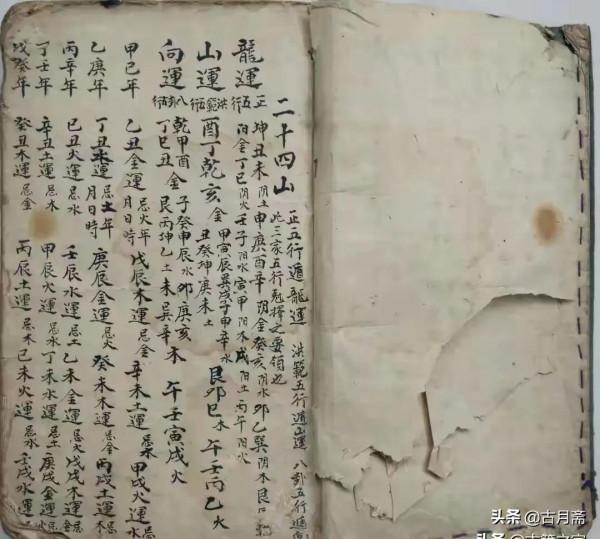 二十四山 正五行遁龍運 洪範五行遁山運 八卦五行遁
此三家五行剋擇之要領也
龍運 正五行 坤丑未 阴土 申庚酉辛 阴金 癸亥 阴水 卯乙巽 阴木 艮
阳金 丁巳 阴火 壬子 阳水 寅甲 阳木 戌 阳土 丙午 阳火
山運 洪範五行 酉丁乾亥 金 甲寅辰巽戌子申辛 水 艮卯巳 木 午壬丙乙 火
丑癸坤庚未 土
向運 八卦五行 乾甲酉 金 子癸申辰 水 卯庚亥 木 午壬寅戌 火
丁巳丑 金 艮丙坤乙 土 未巽辛 木
甲己年 乙丑金運 忌火年月日時 戊辰木運 忌金 辛未土運 忌木 甲戌火運 忌水
乙庚年 丁丑水運 忌土年月日時 庚辰金運 忌火 癸未木運 忌金 丙戌土運 忌木
丙辛年 己丑火運 忌水 壬辰水運 忌土 乙未金運 忌火 戊戌木運 忌金
丁壬年 辛丑土運 忌木 甲辰火運 忌水 丁未水運 忌土 庚戌金運 忌火
戊癸年 癸丑木運 忌金 丙辰土運 忌木 己未火運 忌水 壬戌水運
头条 @古月斋
头条 @古籍之家